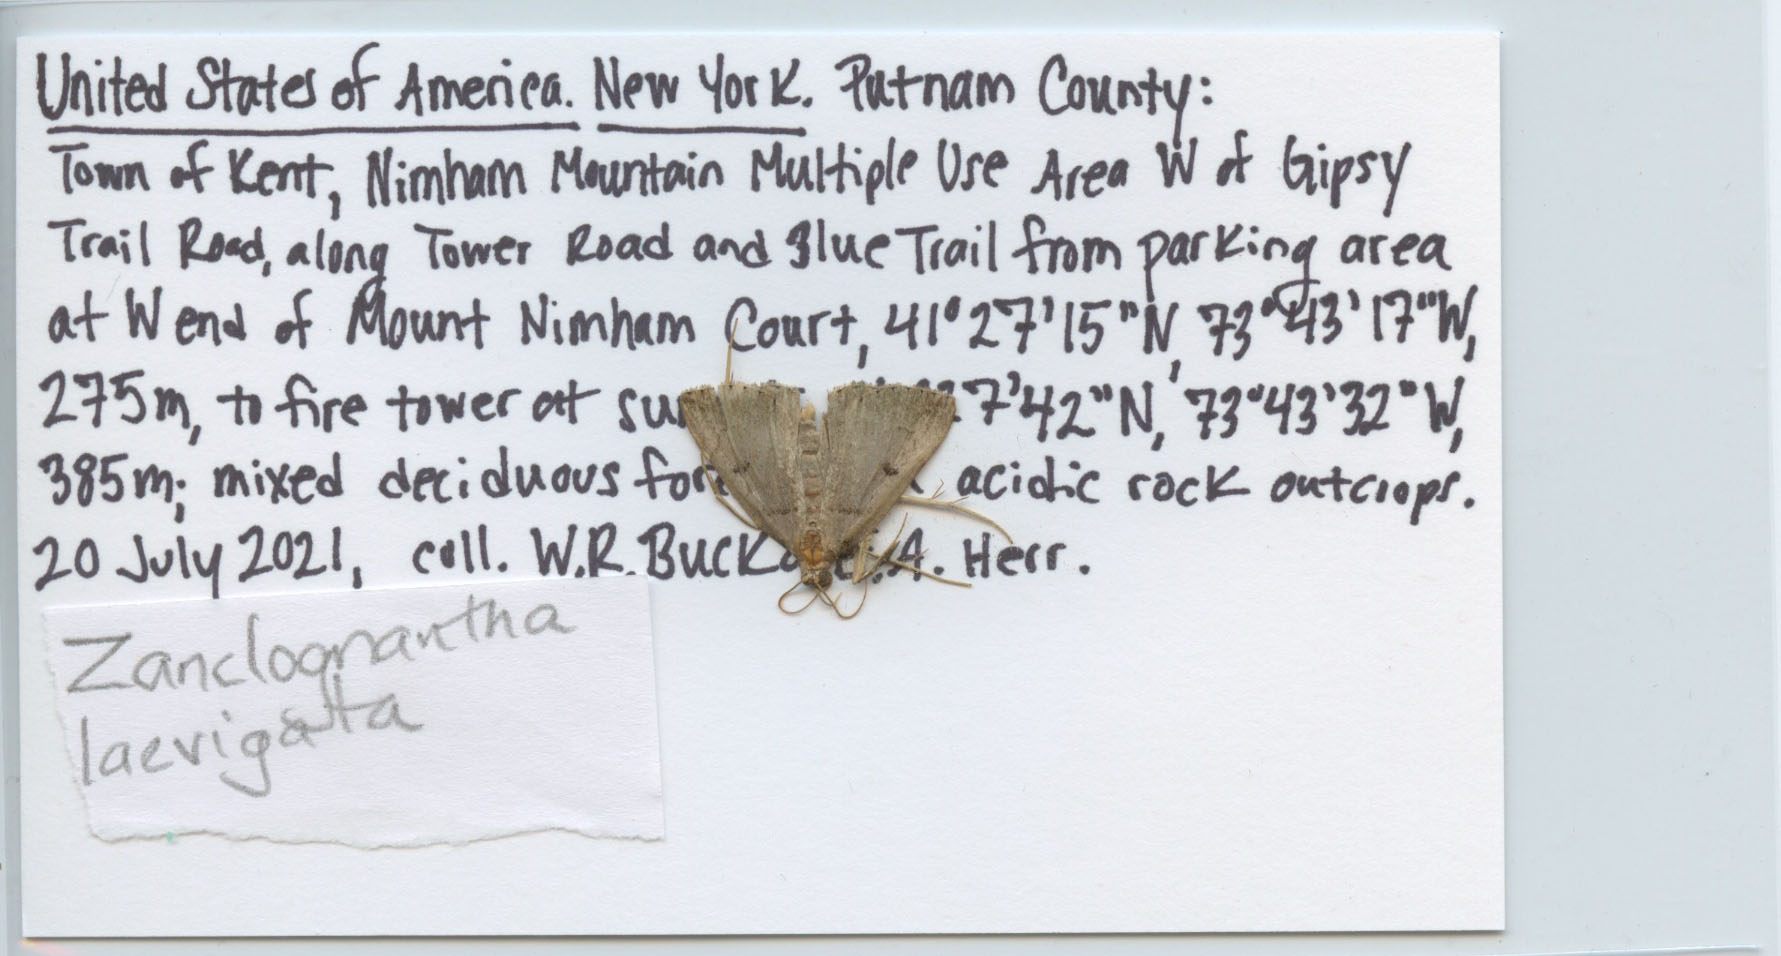 United States of America. New York. Putnam County:
Town of Kent, Nimham Mountain Multiple Use Area W of Gipsy
Trail Road, along Tower Road and Blue Trail from parking area
at W end of Mount Nimham Court, 41°27'15"N, 73°43'17"W,
275m, to fire tower at 7'42"N, 73°43'32"W,
385m; mixed deciduous acidic rock outcrops.
20 July 2021, coll. W.R. Buck A. Herr.
Zanclognantha
laevigata